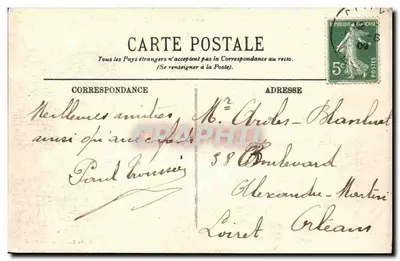 CARTE POSTALE
Tous les Pays étrangers n'acceptent pas la Correspondance au recto.
(Se renseigner à la Poste).
CORRESPONDANCE
ADRESSE
REPUBLIQUE FRANÇAISE
5c
POSTES
09
Meilleures amitiés
ainsi qu'aux
Paul
Mr
38 Boulevard
Alexandre-Martin
Orléans
Loiret